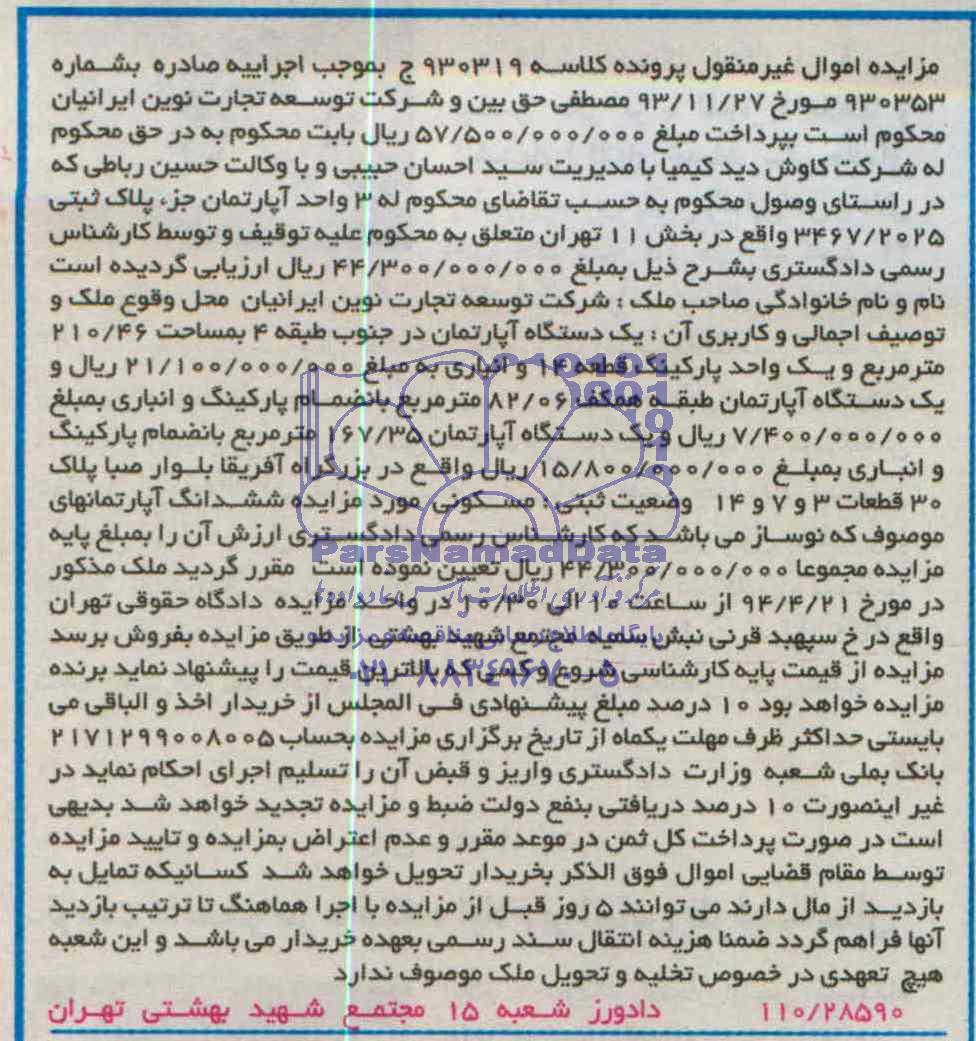 مزایده اموال غیرمنقول پرونده کلاسه ۹۳۰۳۱۹ ج بموجب اجراییه صادره بشماره
۹۳۰۳۵۳ مورخ ۹۳/۱۱/۲۷ مصطفی حق بین و شرکت توسعه تجارت نوین ایرانیان
محکوم است بپرداخت مبلغ ۵۷/۵۰۰/۰۰۰/۰۰۰ ریال بابت محکوم به در حق محکوم
له شرکت کاوش دید کیمیا با مدیریت سید احسان حبیبی و با وکالت حسین رباطی که
در راستای وصول محکوم به حسب تقاضای محکوم له ۳ واحد آپارتمان جز، پلاک ثبتی
۳۴۶۷/۲۰۲۵ واقع در بخش ۱۱ تهران متعلق به محکوم علیه توقیف و توسط کارشناس
رسمی دادگستری بشرح ذیل بمبلغ ۴۴/۳۰۰/۰۰۰/۰۰۰ ریال ارزیابی گردیده است
نام و نام خانوادگی صاحب ملک : شرکت توسعه تجارت نوین ایرانیان محل وقوع ملک و
توصیف اجمالی و کاربری آن : یک دستگاه آپارتمان در جنوب طبقه ۴ بمساحت ۲۱۰/۴۶
مترمربع و یک واحد پارکینگ قطعه ۱۴ و انباری به مبلغ ۲۱/۱۰۰/۰۰۰/۰۰۰ ریال و
یک دستگاه آپارتمان طبقه همکف ۸۲/۰۶ مترمربع بانضمام پارکینگ و انباری بمبلغ
۷/۴۰۰/۰۰۰/۰۰۰ ریال و یک دستگاه آپارتمان ۱۶۷/۳۵ مترمربع بانضمام پارکینگ
و انباری بمبلغ ۱۵/۸۰۰/۰۰۰/۰۰۰ ریال واقع در بزرگراه آفریقا بلوار صبا پلاک
۳۰ قطعات ۳ و ۷ و ۱۴ وضعیت ثبتی : مسکونی مورد مزایده ششدانگ آپارتمانهای
موصوف که نوساز می باشد که کارشناس رسمی دادگستری ارزش آن را بمبلغ پایه
ParsNamadData
مزایده مجموعا ۴۴/۳۰۰/۰۰۰/۰۰۰ ریال تعیین نموده است مقرر گردید ملک مذکور
در مورخ ۹۴/۴/۲۱ از ساعت ۱۰ الی ۱۰/۳۰ در واحد مزایده دادگاه حقوقی تهران
واقع در خ سپهبد قرنی نبش سمیه مجتمع شهید بهشتی از طریق مزایده بفروش برسد
مزایده از قیمت پایه کارشناسی شروع و کسی که بالاترین قیمت را پیشنهاد نماید برنده
۰۲۱-۸۸۳۴۹۶۷۰-۵
مزایده خواهد بود ۱۰ درصد مبلغ پیشنهادی فی المجلس از خریدار اخذ و الباقی می
بایستی حداکثر ظرف مهلت یکماه از تاریخ برگزاری مزایده بحساب ۲۱۷۱۲۹۹۰۰۸۰۰۵
بانک بملی شعبه وزارت دادگستری واریز و قبض آن را تسلیم اجرای احکام نماید در
غیر اینصورت ۱۰ درصد دریافتی بنفع دولت ضبط و مزایده تجدید خواهد شد بدیهی
است در صورت پرداخت کل ثمن در موعد مقرر و عدم اعتراض بمزایده و تایید مزایده
توسط مقام قضایی اموال فوق الذکر بخریدار تحویل خواهد شد کسانیکه تمایل به
بازدید از مال دارند می توانند ۵ روز قبل از مزایده با اجرا هماهنگ تا ترتیب بازدید
آنها فراهم گردد ضمنا هزینه انتقال سند رسمی بعهده خریدار می باشد و این شعبه
هیچ تعهدی در خصوص تخلیه و تحویل ملک موصوف ندارد
۱۱۰/۲۸۵۹۰ دادورز شعبه ۱۵ مجتمع شهید بهشتی تهران